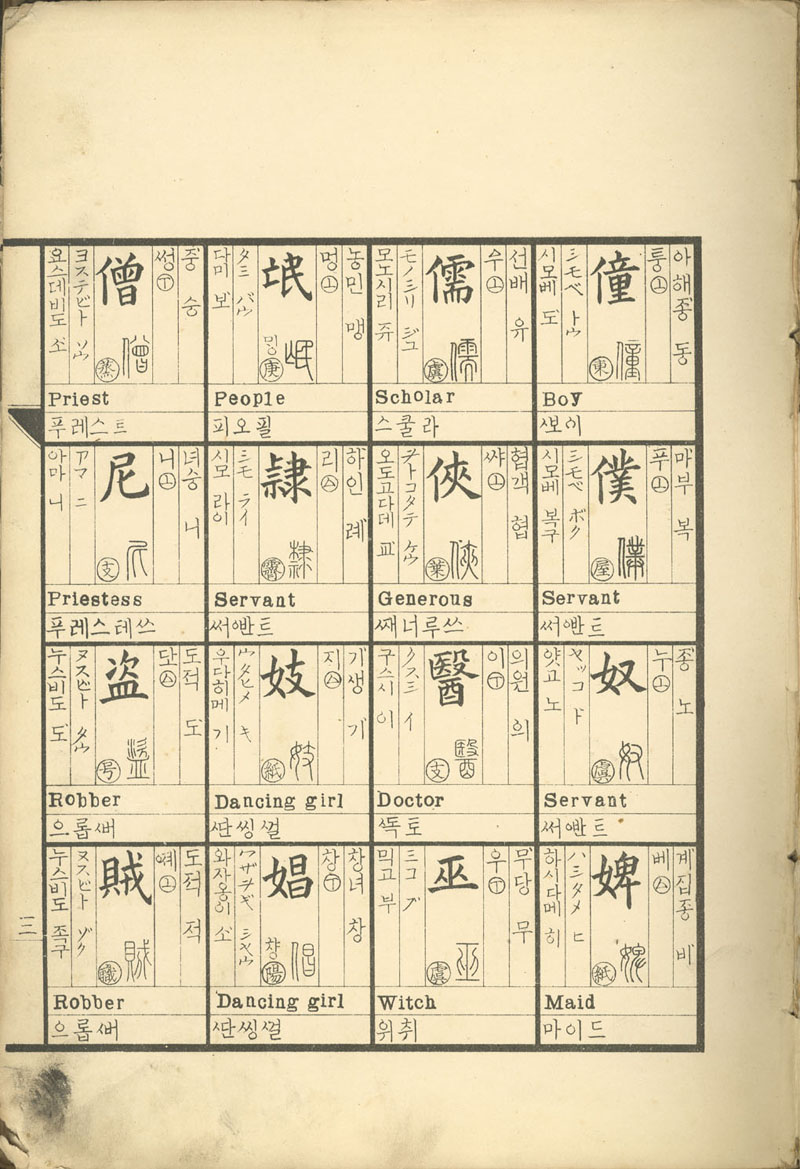 아해죵 동
퉁 ㊤
僮
僮 東
シモベ トウ
시모베 도
Boy
ᄲᅩ이
마부 복
푸 ㊤
僕
僕 屋
シモベ ボク
시모베 복구
Servant
죵 노
누 ㊤
奴
奴 虞
ヤッコ ド
얏고 노
Servant
계집죵 비
베
婢
婢 紙
ハシタメ ヒ
하시다메 히
Maid
마이드
선배 유
수 ㊤
儒
儒 虞
モノシリ ジュ
모노시리 쥬
Scholar
스쿨라
협객 협
쌰 ㊤
俠
俠 葉
オトコダテ ケウ
오도고다데 교
Generous
쩨너루쓰
의원 의
이 ㊦
醫
醫 支
クスシ イ
구스시 이
Doctor
ᄯᅩᆨ토
무당 무
우 ㊦
巫
巫 虞
ミコ ブ
믹고 부
Witch
위취
농민 맹
멍 ㊤
氓
밍 氓 庚
タミ バウ
다미 보
People
피오필
하인 례
리
隷
隷 霽
シモ ライ
시모 라이
Servant
기생 기
지
妓
妓 紙
ウタヒメ キ
우다히메 기
Dancing girl
ᄯᅡᆫ씽껄
창녀 창
창 ㊦
娼
챵 倡 陽
ワザヲギ シャウ
와자옹이 쇼
Dancing girl
ᄯᅡᆫ씽껄
중 승
썽 ㊦
僧
僧 蒸
ヨステビト ソウ
요스데비도 소
Priest
푸레스트
녀승 니
니 ㊤
尼
尼 支
アマ ニ
아마 니
Priestess
푸레스테쓰
도적 도
단
盜
盜 号
ヌスビト タウ
누스비도 도
Robber
으롭ᄲᅥ
도적 적
㊤
賊
賊 職
ヌスビト ゾク
누스비도 족구
Robber
으롭ᄲᅥ
三